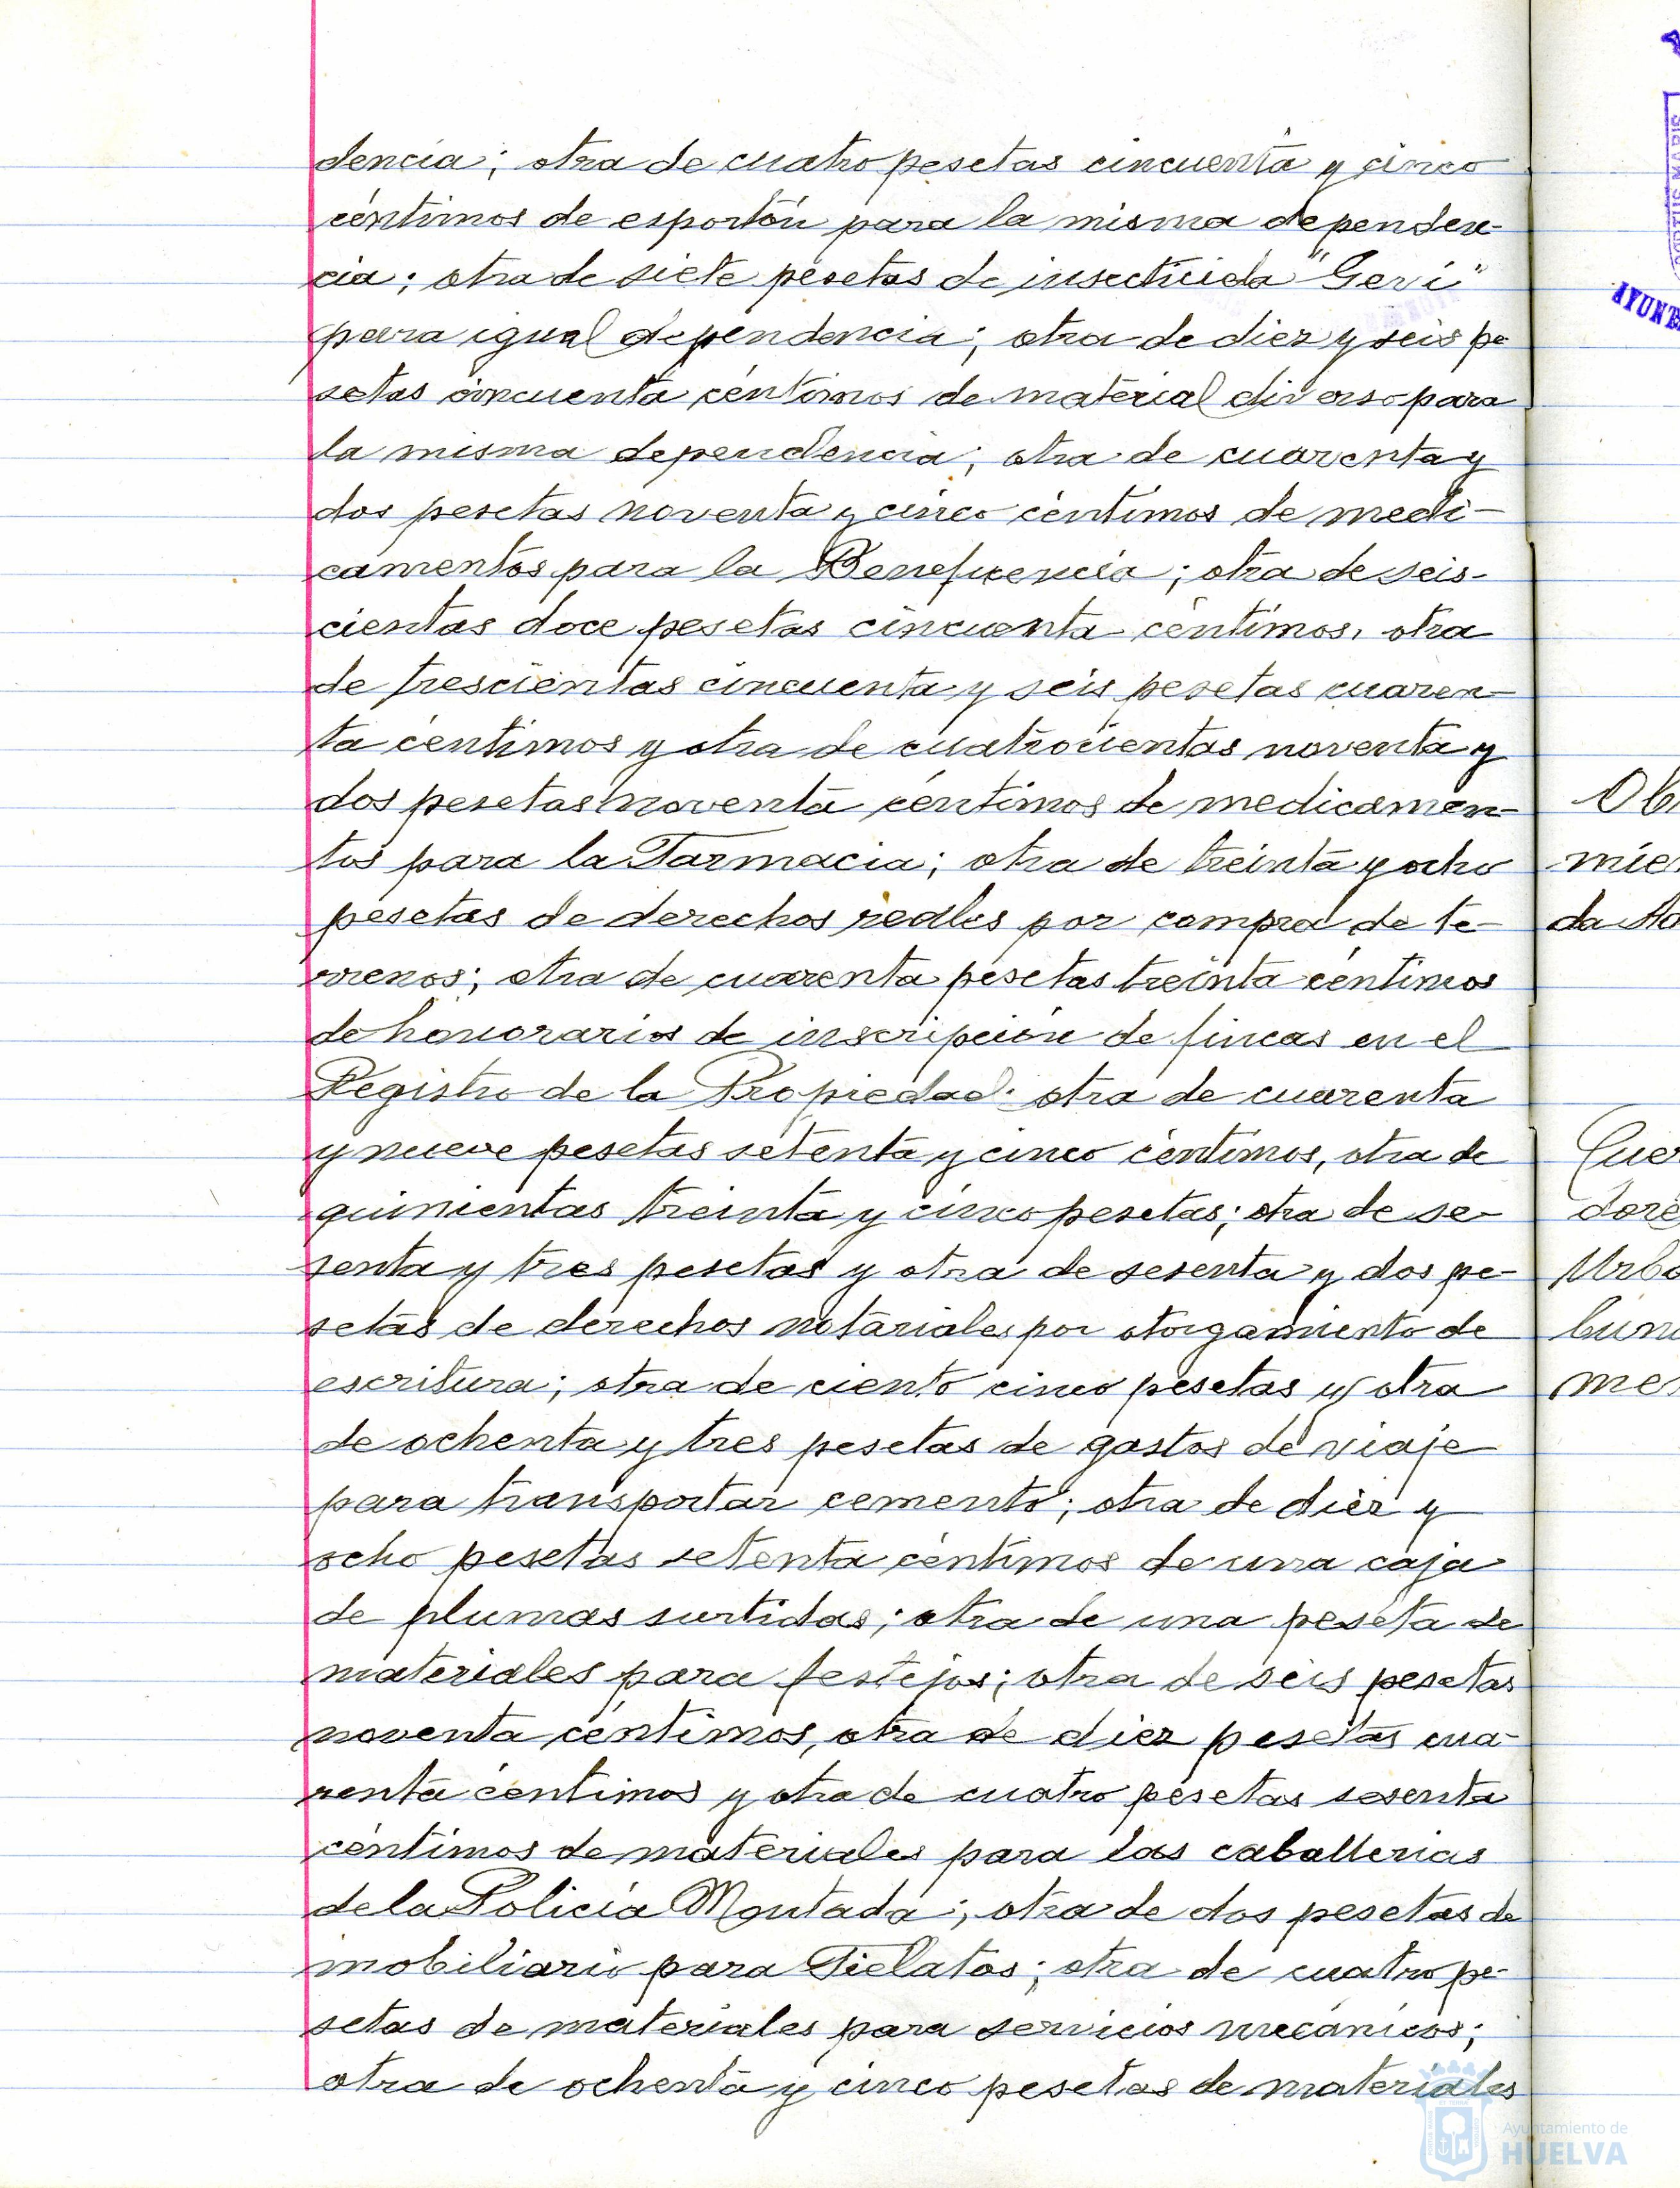 dencia; otra de cuatro pesetas cincuenta y cinco
céntimos de esportón para la misma dependen-
cia; otra de siete pesetas de insecticida "Gevi"
para igual dependencia; otra de diez y seis pe
setas cincuenta céntimos de material diverso para
la misma dependencia; otra de cuarenta y
dos pesetas noventa y cinco céntimos de medi-
camentos para la Beneficencia; otra de seis-
cientas doce pesetas cincuenta céntimos, otra
de trescientas cincuenta y seis pesetas cuaren-
ta céntimos y otra de cuatrocientas noventa y
dos pesetas noventa céntimos de medicamen-
tos para la Farmacia; otra de treinta y ocho
pesetas de derechos reales por compra de te-
rrenos; otra de cuarenta pesetas treinta céntimos
de honorarios de inscripción de fincas en el
Registro de la Propiedad; otra de cuarenta
y nueve pesetas setenta y cinco céntimos, otra de
quinientas treinta y cinco pesetas; otra de se-
senta y tres pesetas y otra de sesenta y dos pe-
setas de derechos notariales por otorgamiento de
escritura; otra de ciento cinco pesetas y otra
de ochenta y tres pesetas de gastos de viaje
para transportar cemento; otra de diez y
ocho pesetas setenta céntimos de una caja
de plumas surtidas; otra de una peseta de
materiales para festejos; otra de seis pesetas
noventa céntimos, otra de diez pesetas cua-
renta céntimos y otra de cuatro pesetas sesenta
céntimos de materiales para las caballerias
de la Policía Montada; otra de dos pesetas de
mobiliario para Fielatos; otra de cuatro pe-
setas de materiales para servicios mecánicos;
otra de ochenta y cinco pesetas de materiales
Ob
mie
da Ad
Cuer
dore
Urba
bun
me
PORTUS MARIS
AYUNT
Ayuntamiento de
HUELVA